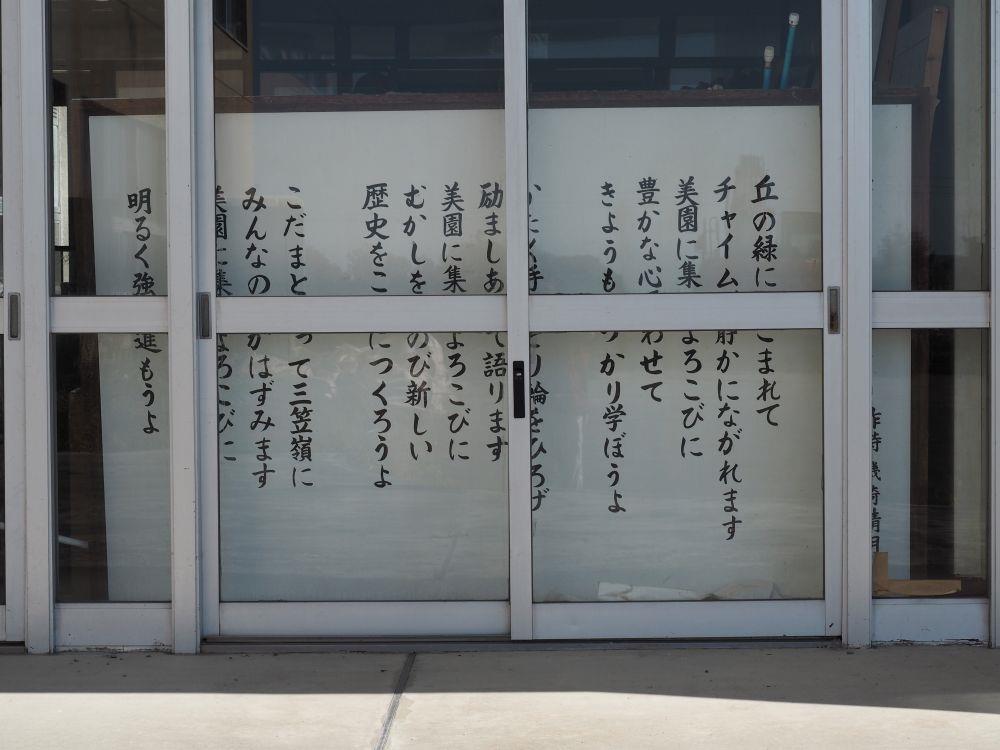 作詩 磯崎清明
丘の緑に こまれて
チャイム 静かにながれます
美園に集 よろこびに
豊かな心 わせて
きょうも っかり学ぼうよ
たく手 とり輪をひろげ
励ましあ て語ります
美園に集 よろこびに
むかしを のび新しい
歴史をこ につくろうよ
こだまと って三笠嶺に
みんなの がはずみます
美園に集 よろこびに
明るく強 進もうよ